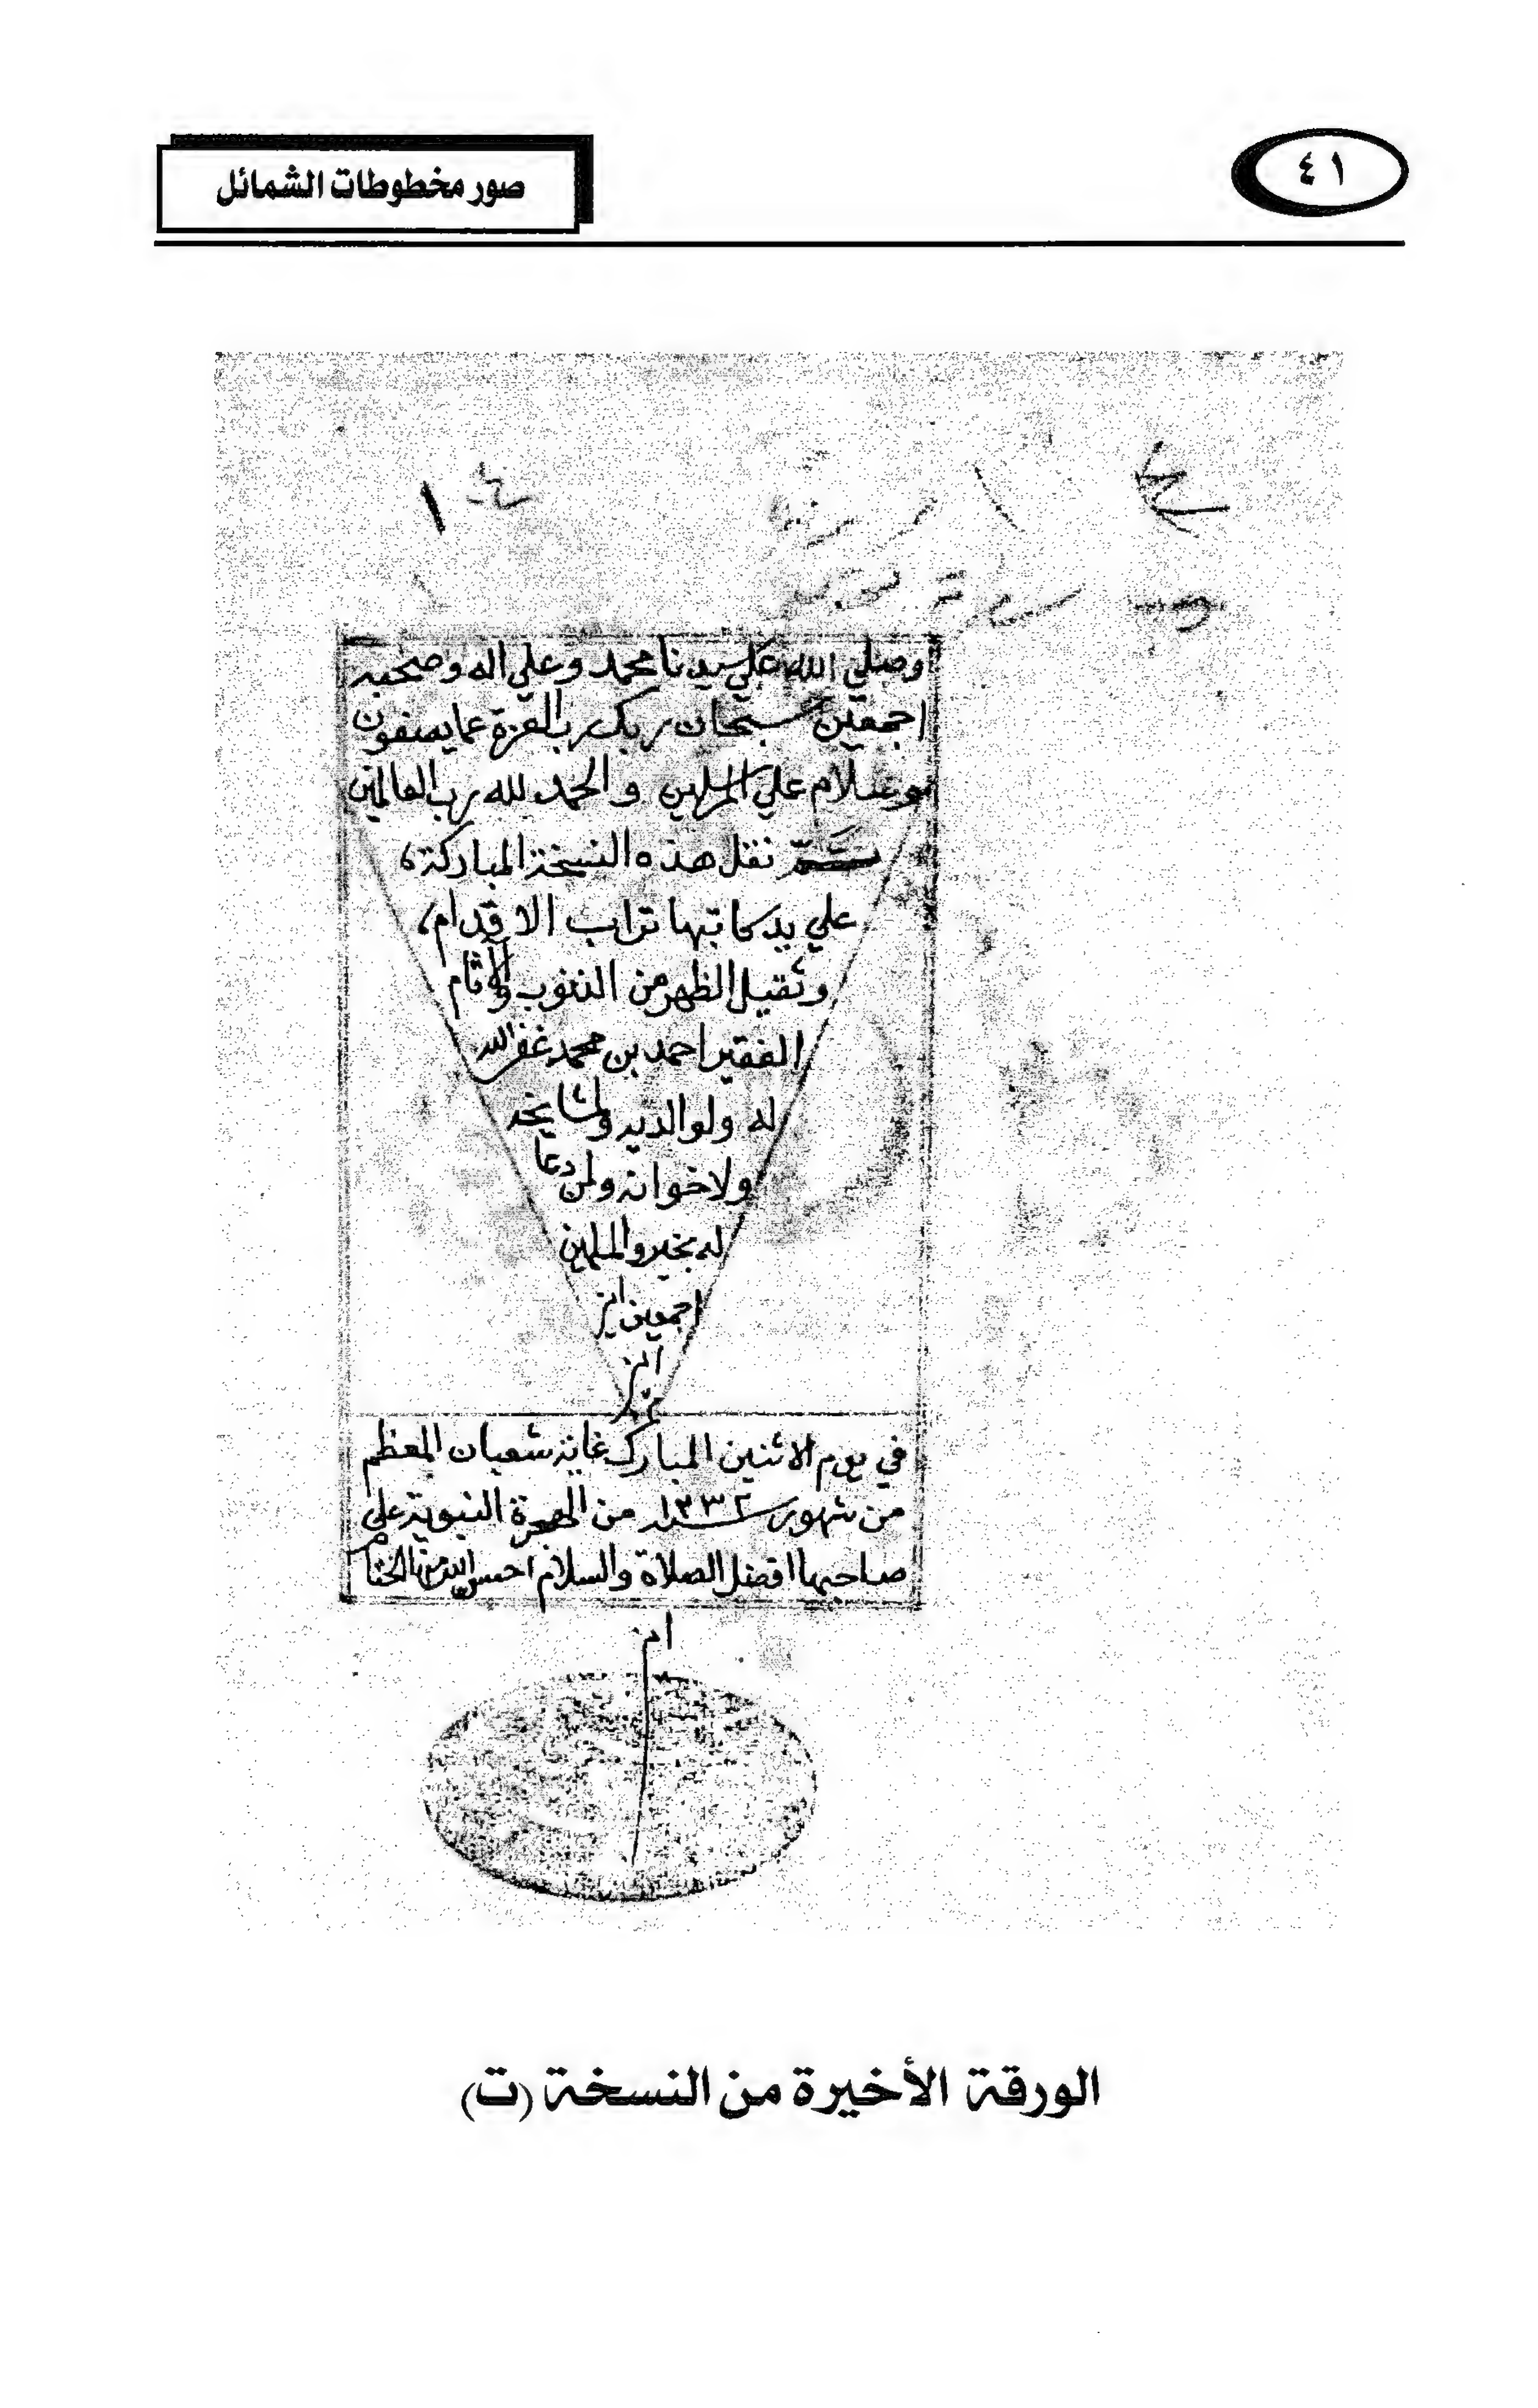 ٤١
صور مخطوطات الشمائل
١
وصلي الله علي سيدنا محمد وعلي اله وصحبه
اجمعين سبحان ربك رب العزة عما يصفون
وسلام علي المرسلين والحمد لله رب العالمين
تم نقل هذه النسخة المباركة
علي يد كاتبها تراب الاقدام
وثقيل الظهر من الذنوب والآثام
الفقير احمد بن محمد غفر الله
له ولوالديه ولمشايخه
ولاخوانه ولمن دعا
له بخير والمسلمين
اجمعين امين
امين
م
في يوم الاثنين المبارك غاية شعبان المعظم
من شهور سنة ١٣٣٢ من الهجرة النبوية علي
صاحبها افضل الصلاة والسلام احسن الله منا الختام
امين
الورقة الأخيرة من النسخة (ت)